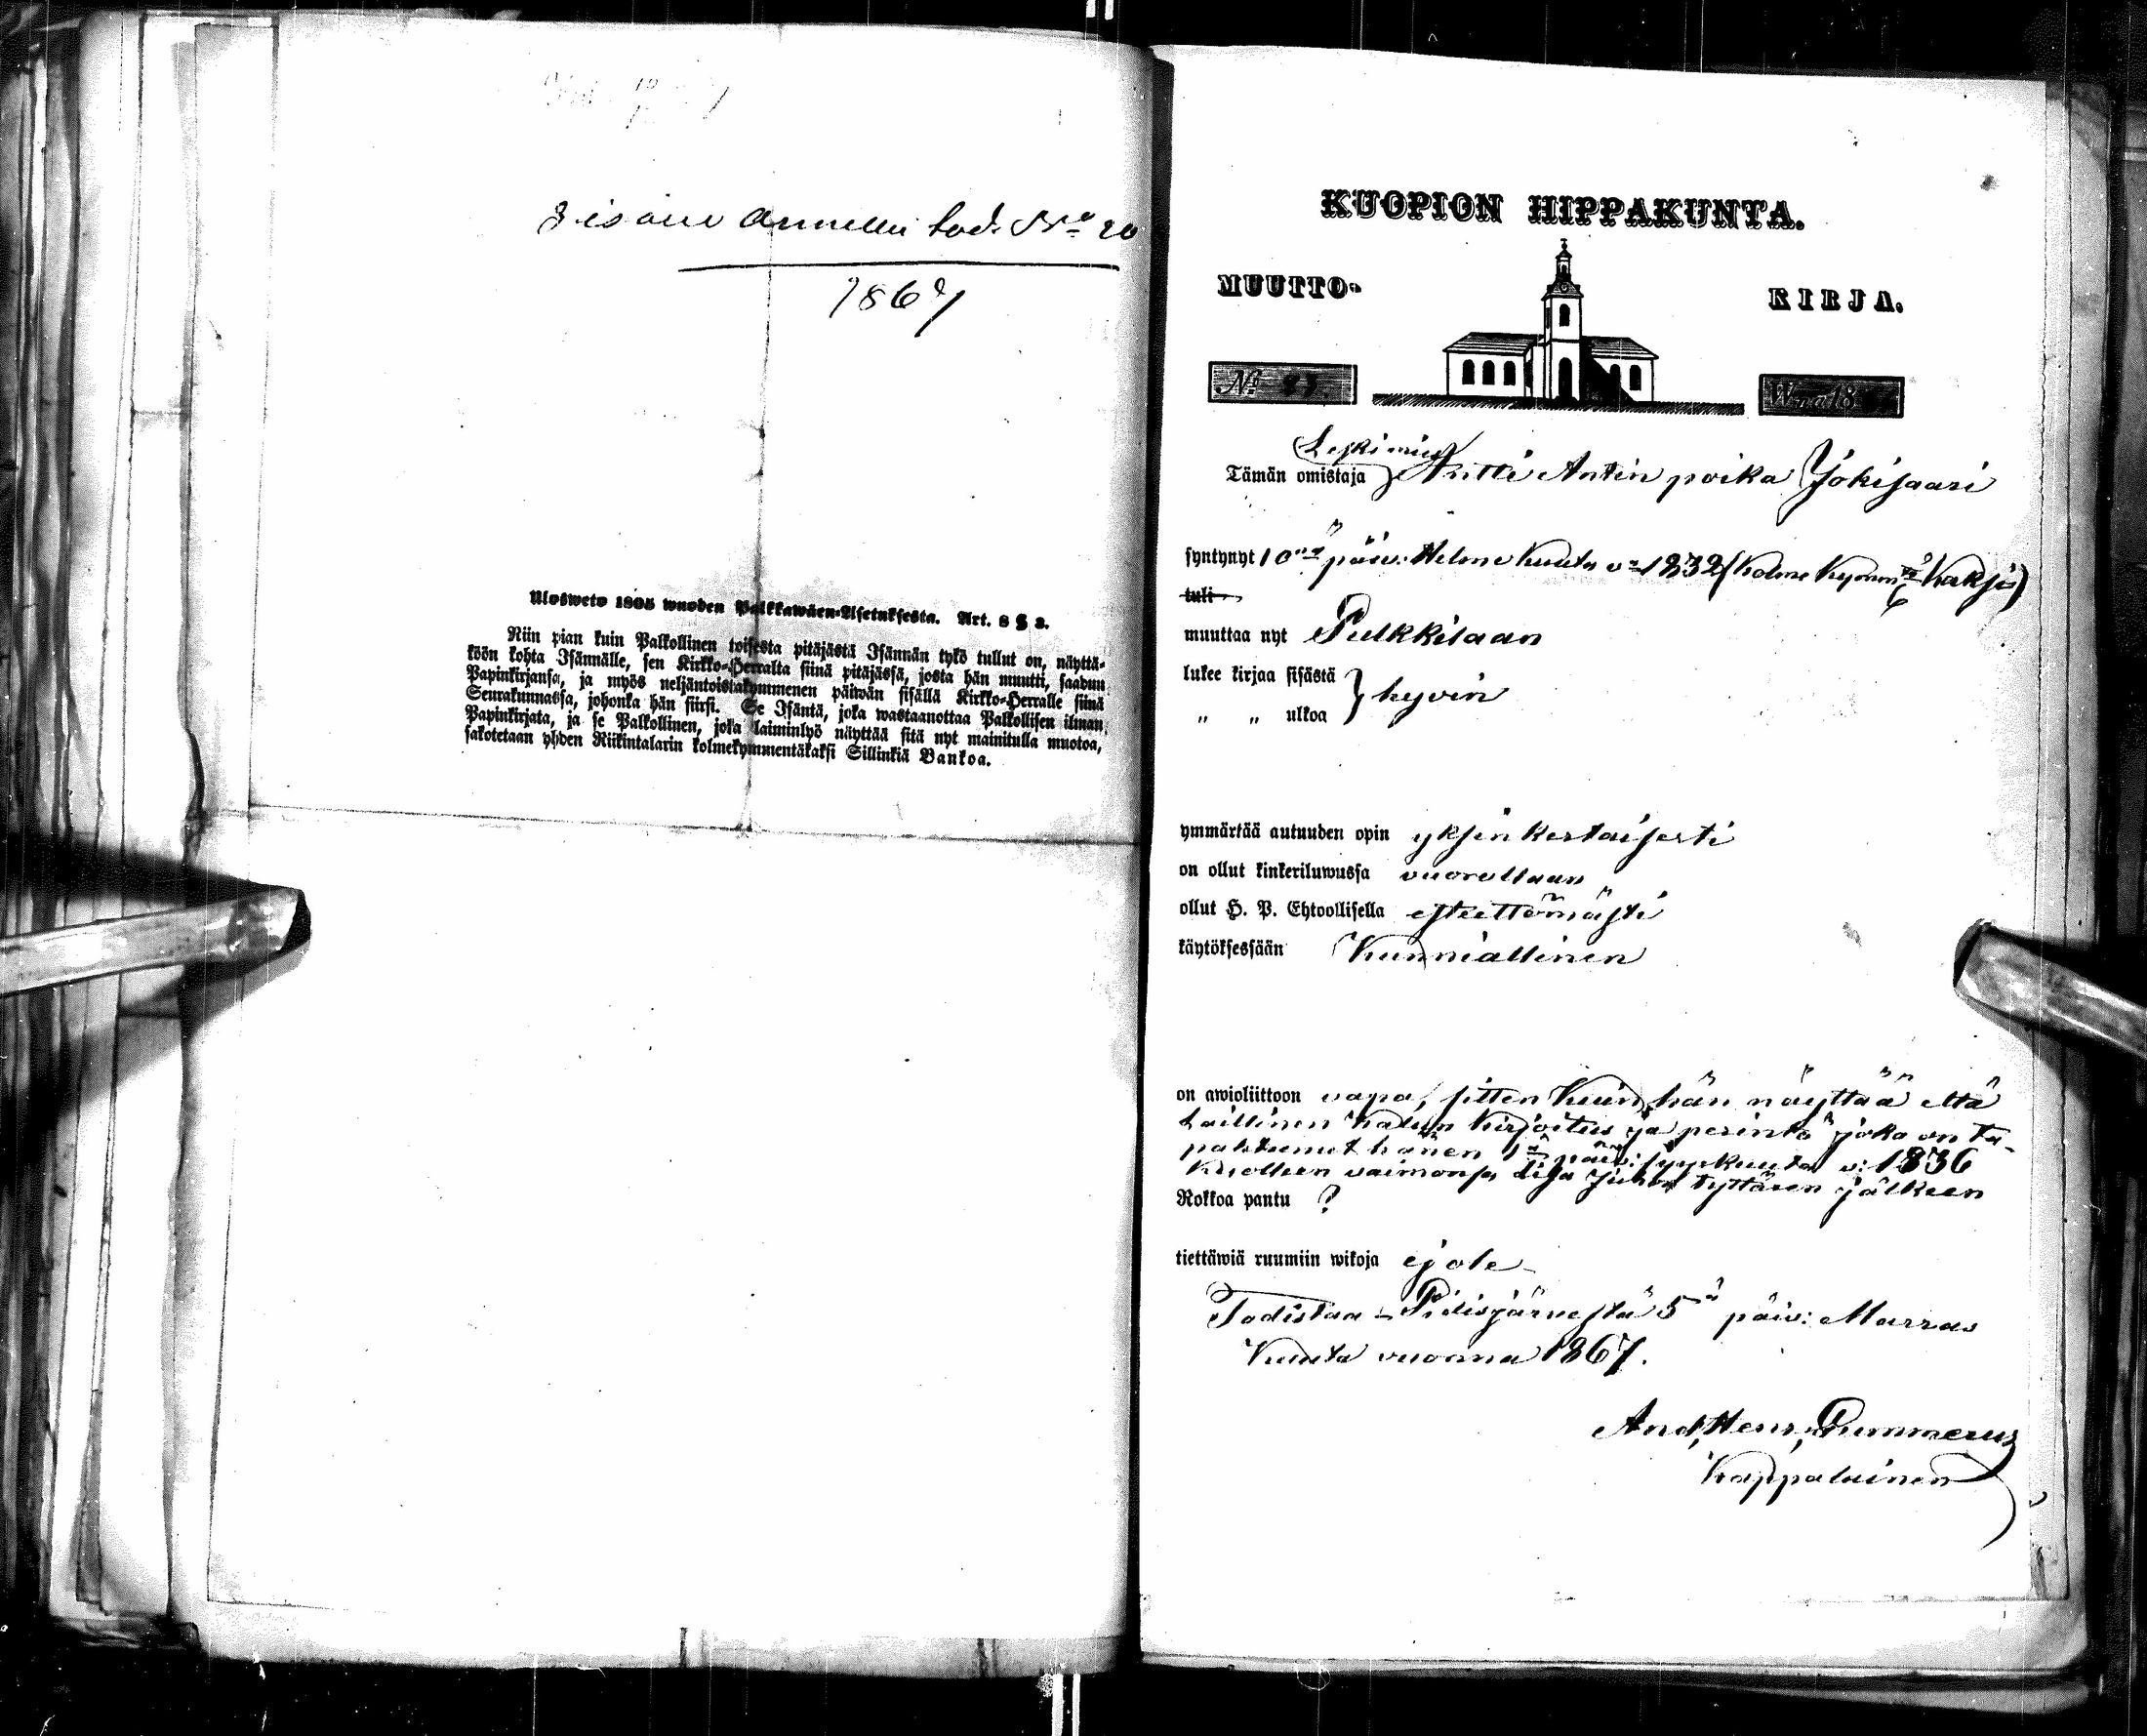 Sisään annettu tod. No 20
1867
Ulosweto 1805 wuoden Palkkawäen-Asetuksesta. Art. 8 § 2.
Niin pian kuin Palkollinen toisesta pitäjästä Isännän tykö tullut on, näyttä-
köön kohta Isännälle, sen Kirkko-Herralta siinä pitäjässä, josta hän muutti, saadun
Papinkirjansa, ja myös neljäntoistakymmenen päiwän sisällä Kirkko-Herralle siinä
Seurakunnassa, johonka hän siirsi. Se Isäntä, joka wastaanottaa Palkollisen ilman
Papinkirjata, ja se Palkollinen, joka laiminlyö näyttää sitä nyt mainitulla muotoa,
sakotetaan yhden Riikintalarin kolmekymmentäkaksi Sillinkiä Bankoa.
KUOPION HIPPAKUNTA.
MUUTTO- KIRJA.
No 83. Wna 18
Leskimies
Tämän omistaja Antti Antin poika Jokisaari
syntynyt 10nä päiv: Helme kuuta v:na 1832 (kolme kymm: kaksi)
tuli
muuttaa nyt Pulkkilaan
lukee kirjaa sisästä } hyvin
" " ulkoa
ymmärtää autuuden opin yksinkertaisesti
on ollut kinkeriluwussa vuorollaan
ollut H. P. Ehtoollisella esteettömästi
käytöksessään Kunniallinen
on awioliittoon vapa, sitten kuin hän näyttää että
Laillinen kalun kirjoitus ja perintö joko on ta-
pahtunut hänen 1nä päiv: syyskuuta v: 1836
kuolleen vaimonsa Liisa Juhon tyttären jälkeen
Rokkoa pantu ?
tiettäwiä ruumiin wikoja ej ole
Todistaa - Pidisjärvestä 5nä päiv: Marras
Kuuta vuonna 1867.
And. Henr. Gummerus
Kappalainen